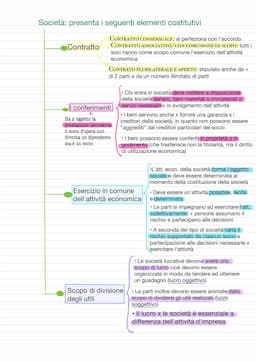 Società: presenta i seguenti elementi costitutivi
Contratto
CONTRATTO CONSENSUALE: si perfeziona con l'accordo
CONTRATTO ASSOCIATIVO/CON COMUNIONE DI SCOPO: tutti i
soci hanno come scopo comune l'esercizio dell'attività
economica
CONTRATTO PLURILATERALE O APERTO: stipulato anche da +
di 2 parti e da un numero illimitato di parti
I conferimenti
• Chi entra in società deve mettere a disposizione
della società denaro, beni materiali o immateriali o
servizi necessari lo svolgimento dell'attività
• I beni servono anche x fornire una garanzia x i
creditori della società, in quanto non possono essere
"aggrediti" dai creditori particolari del socio
• I beni possono essere conferiti in proprietà o in
godimento (che trasferisce non la titolarità, ma il diritto
di utilizzazione economica)
Esercizio in comune
dell'attività economica
• L'att. econ. della società forma l'oggetto
sociale e deve essere determinata al
momento della costituzione della società
• Deve essere un'attività possibile, lecita
e determinata
• Le parti si impegnano ad esercitare l'att.
collettivamente: + persone assumano il
rischio e partecipano alle decisioni
• A seconda del tipo di società varia il
rischio supportato da ciascun socio e
partecipazione alle decisioni necessarie x
esercitare l'attività
Scopo di divisione
degli utili
• Le società lucrative devono avere uno
scopo di lucro cioè devono essere
organizzate in modo da tendere ed ottenere
un guadagno (lucro oggettivo)
• Le parti inoltre devono essere animate dallo
scopo di dividersi gli utili realizzati (lucro
soggettivo)
• Il lucro x le società è essenziale a
differenza dell'attività d'impresa.